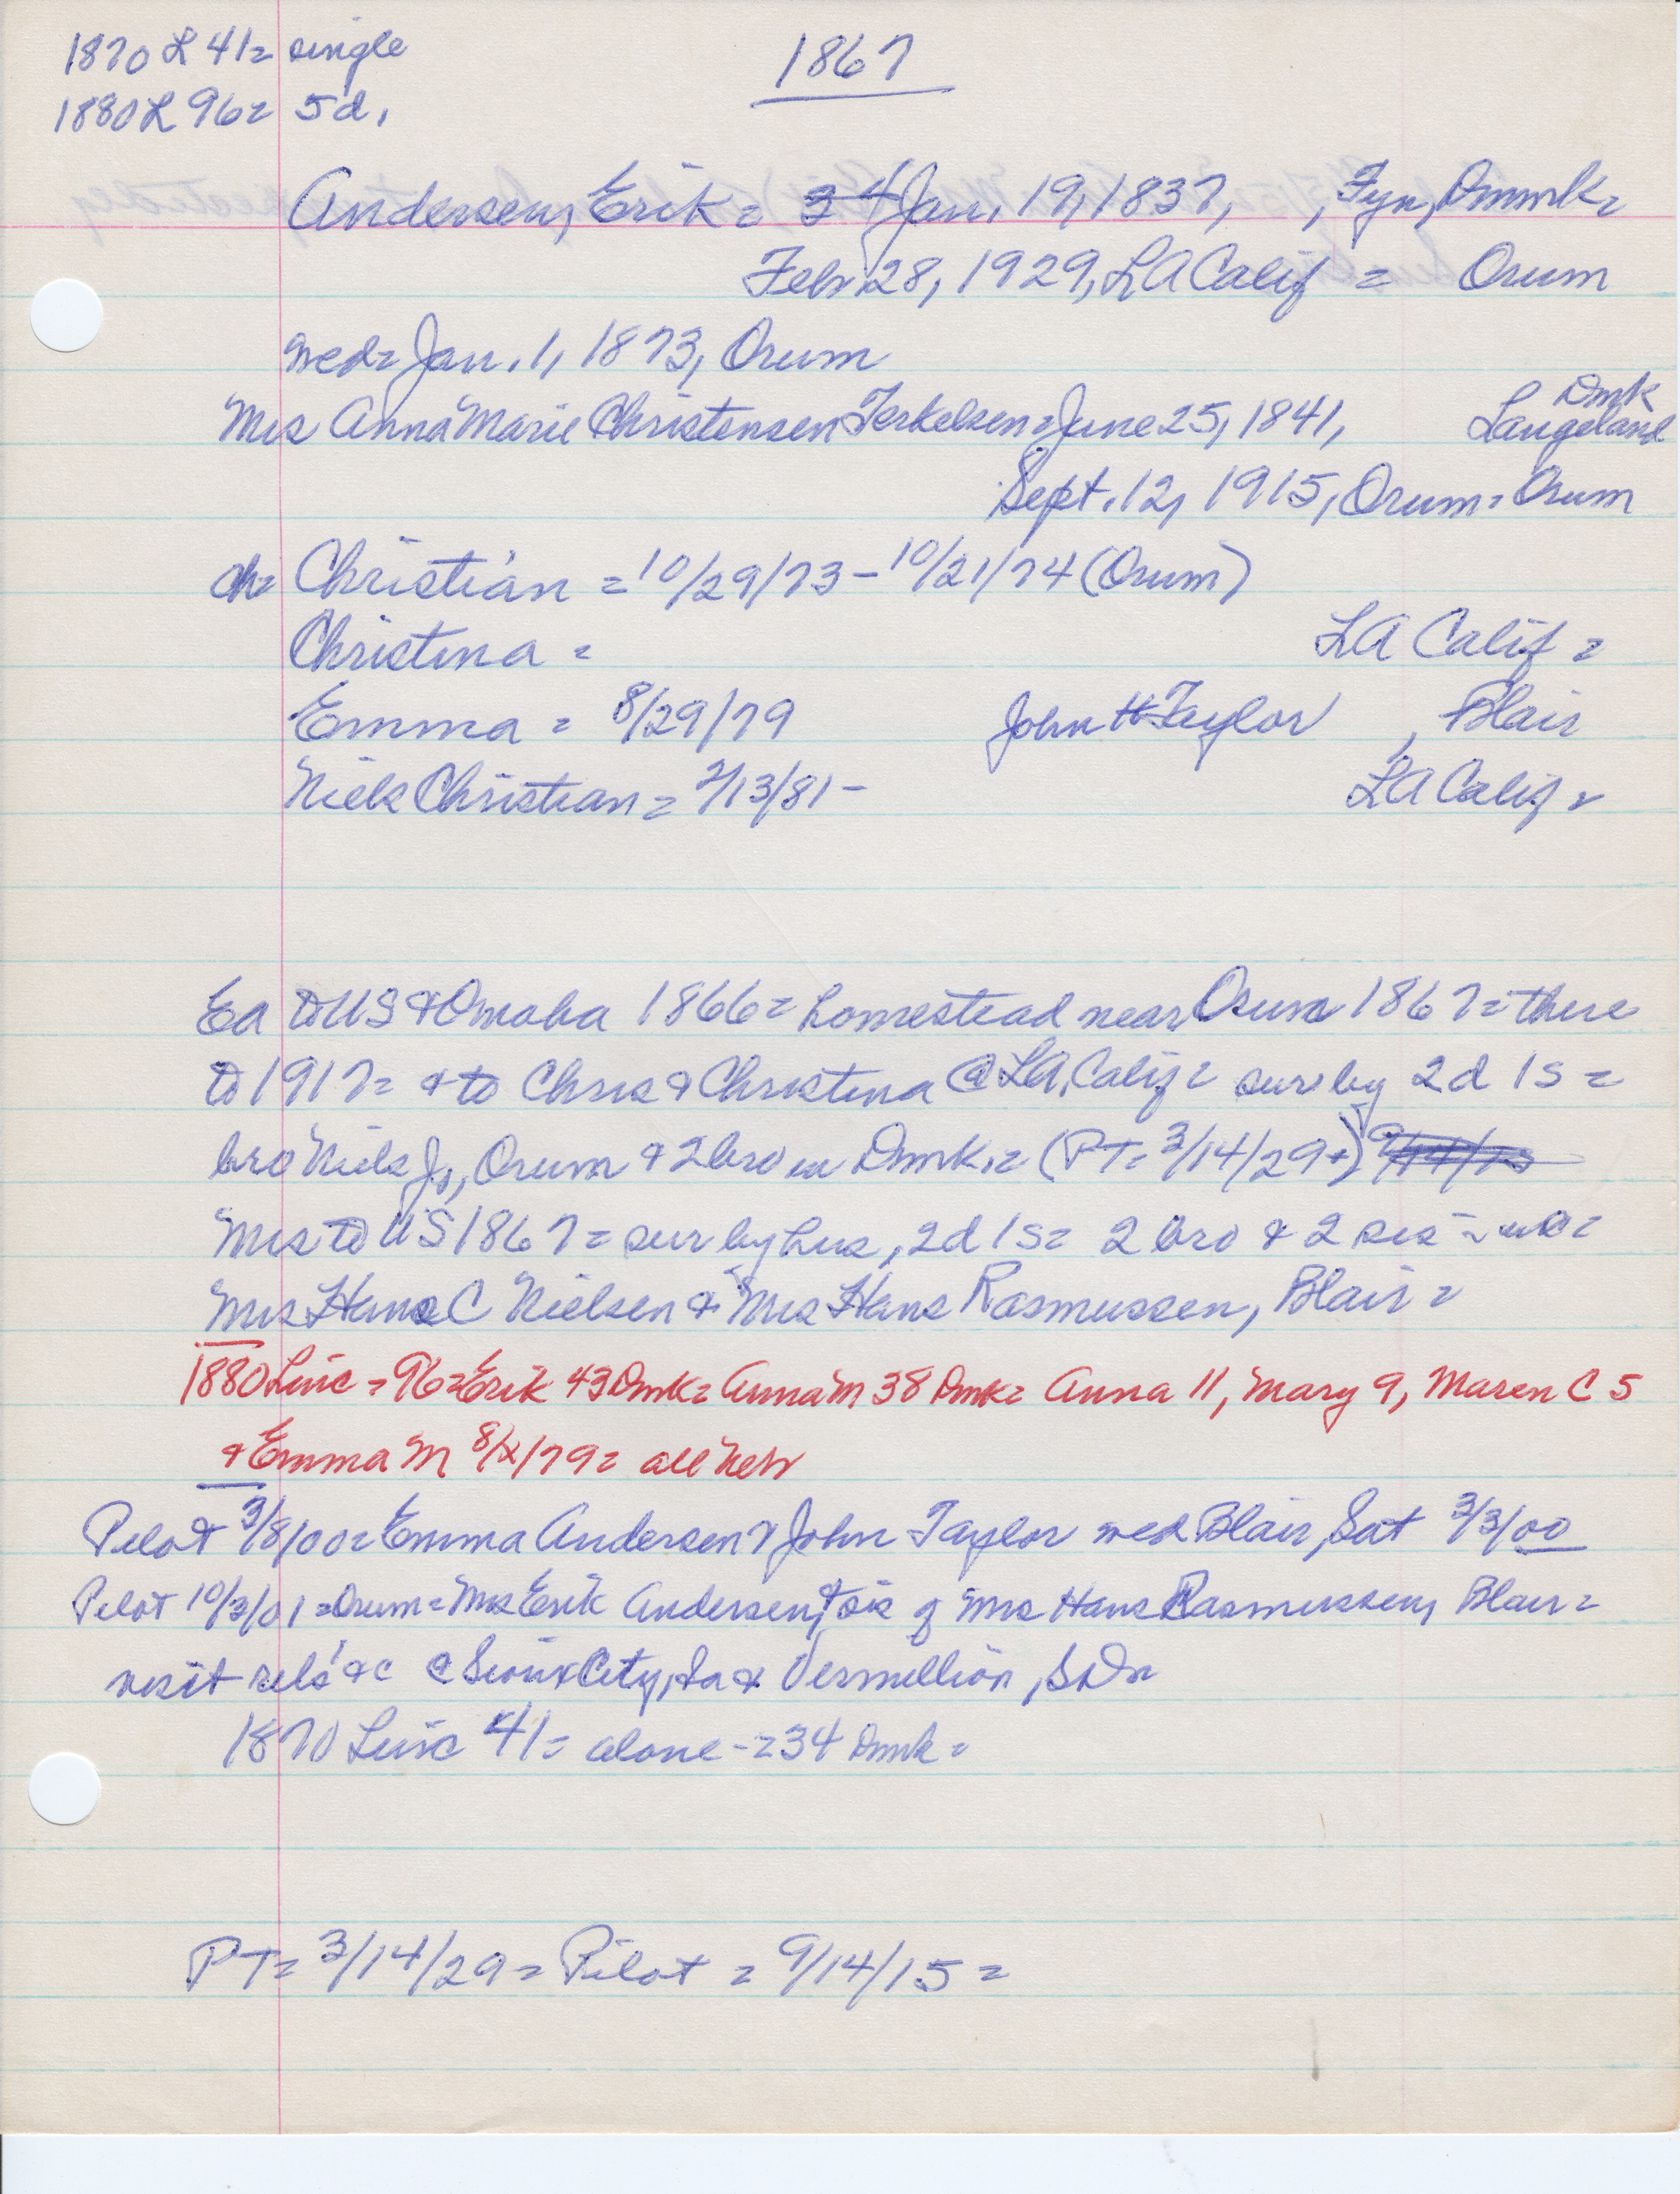 1870 L 41= single
1867
1880 L 96= 5d.
Andersen, Erik = 34 Jan. 19, 1837, , Fyn, Dnmrk=
Febr 28, 1929, LA Calif = Orum
wed= Jan. 1, 1873, Orum
Mrs Anna Marie Christensen Terkelsen = June 25, 1841, Langeland Dmk
Sept. 12, 1915, Orum = Orum
ch= Christian = 10/29/73 - 10/21/74 (Orum)
Christina = LA Calif =
Emma = 8/29/79 John H Taylor , Blair
Niels Christian = 2/13/81 - LA Calif =
Ea to US & Omaha 1866= homestead near Orum 1867= there
to 1917= & to Chris & Christina @ LA, Calif = sur by 2d 1s =
bro Niels J., Orum & 2 bro in Dmrk.= (PT= 3/14/29+) 9/14/15
Mrs to US 1867 = sur by hus, 2d 1s= 2 bro & 2 sis =
Mrs Hans C Nielsen & Mrs Hans Rasmussen, Blair =
1880 Linc = 96= Erik 43 Dmk= Anna M 38 Dmk= Anna 11, Mary 9, Maren C 5
& Emma M 8/x/79= all Neb
Pilot 3/8/00= Emma Andersen & John Taylor wed Blair, Sat 3/3/00
Pilot 10/3/01 = Orum = Mrs Erik Andersen, & sis of Mrs Hans Rasmussen, Blair =
visit rels &c @ Sioux City, Ia & Vermillion, SD=
1870 Linc 41= alone -= 34 Dmk =
PT= 3/14/29 = Pilot = 9/14/15 =